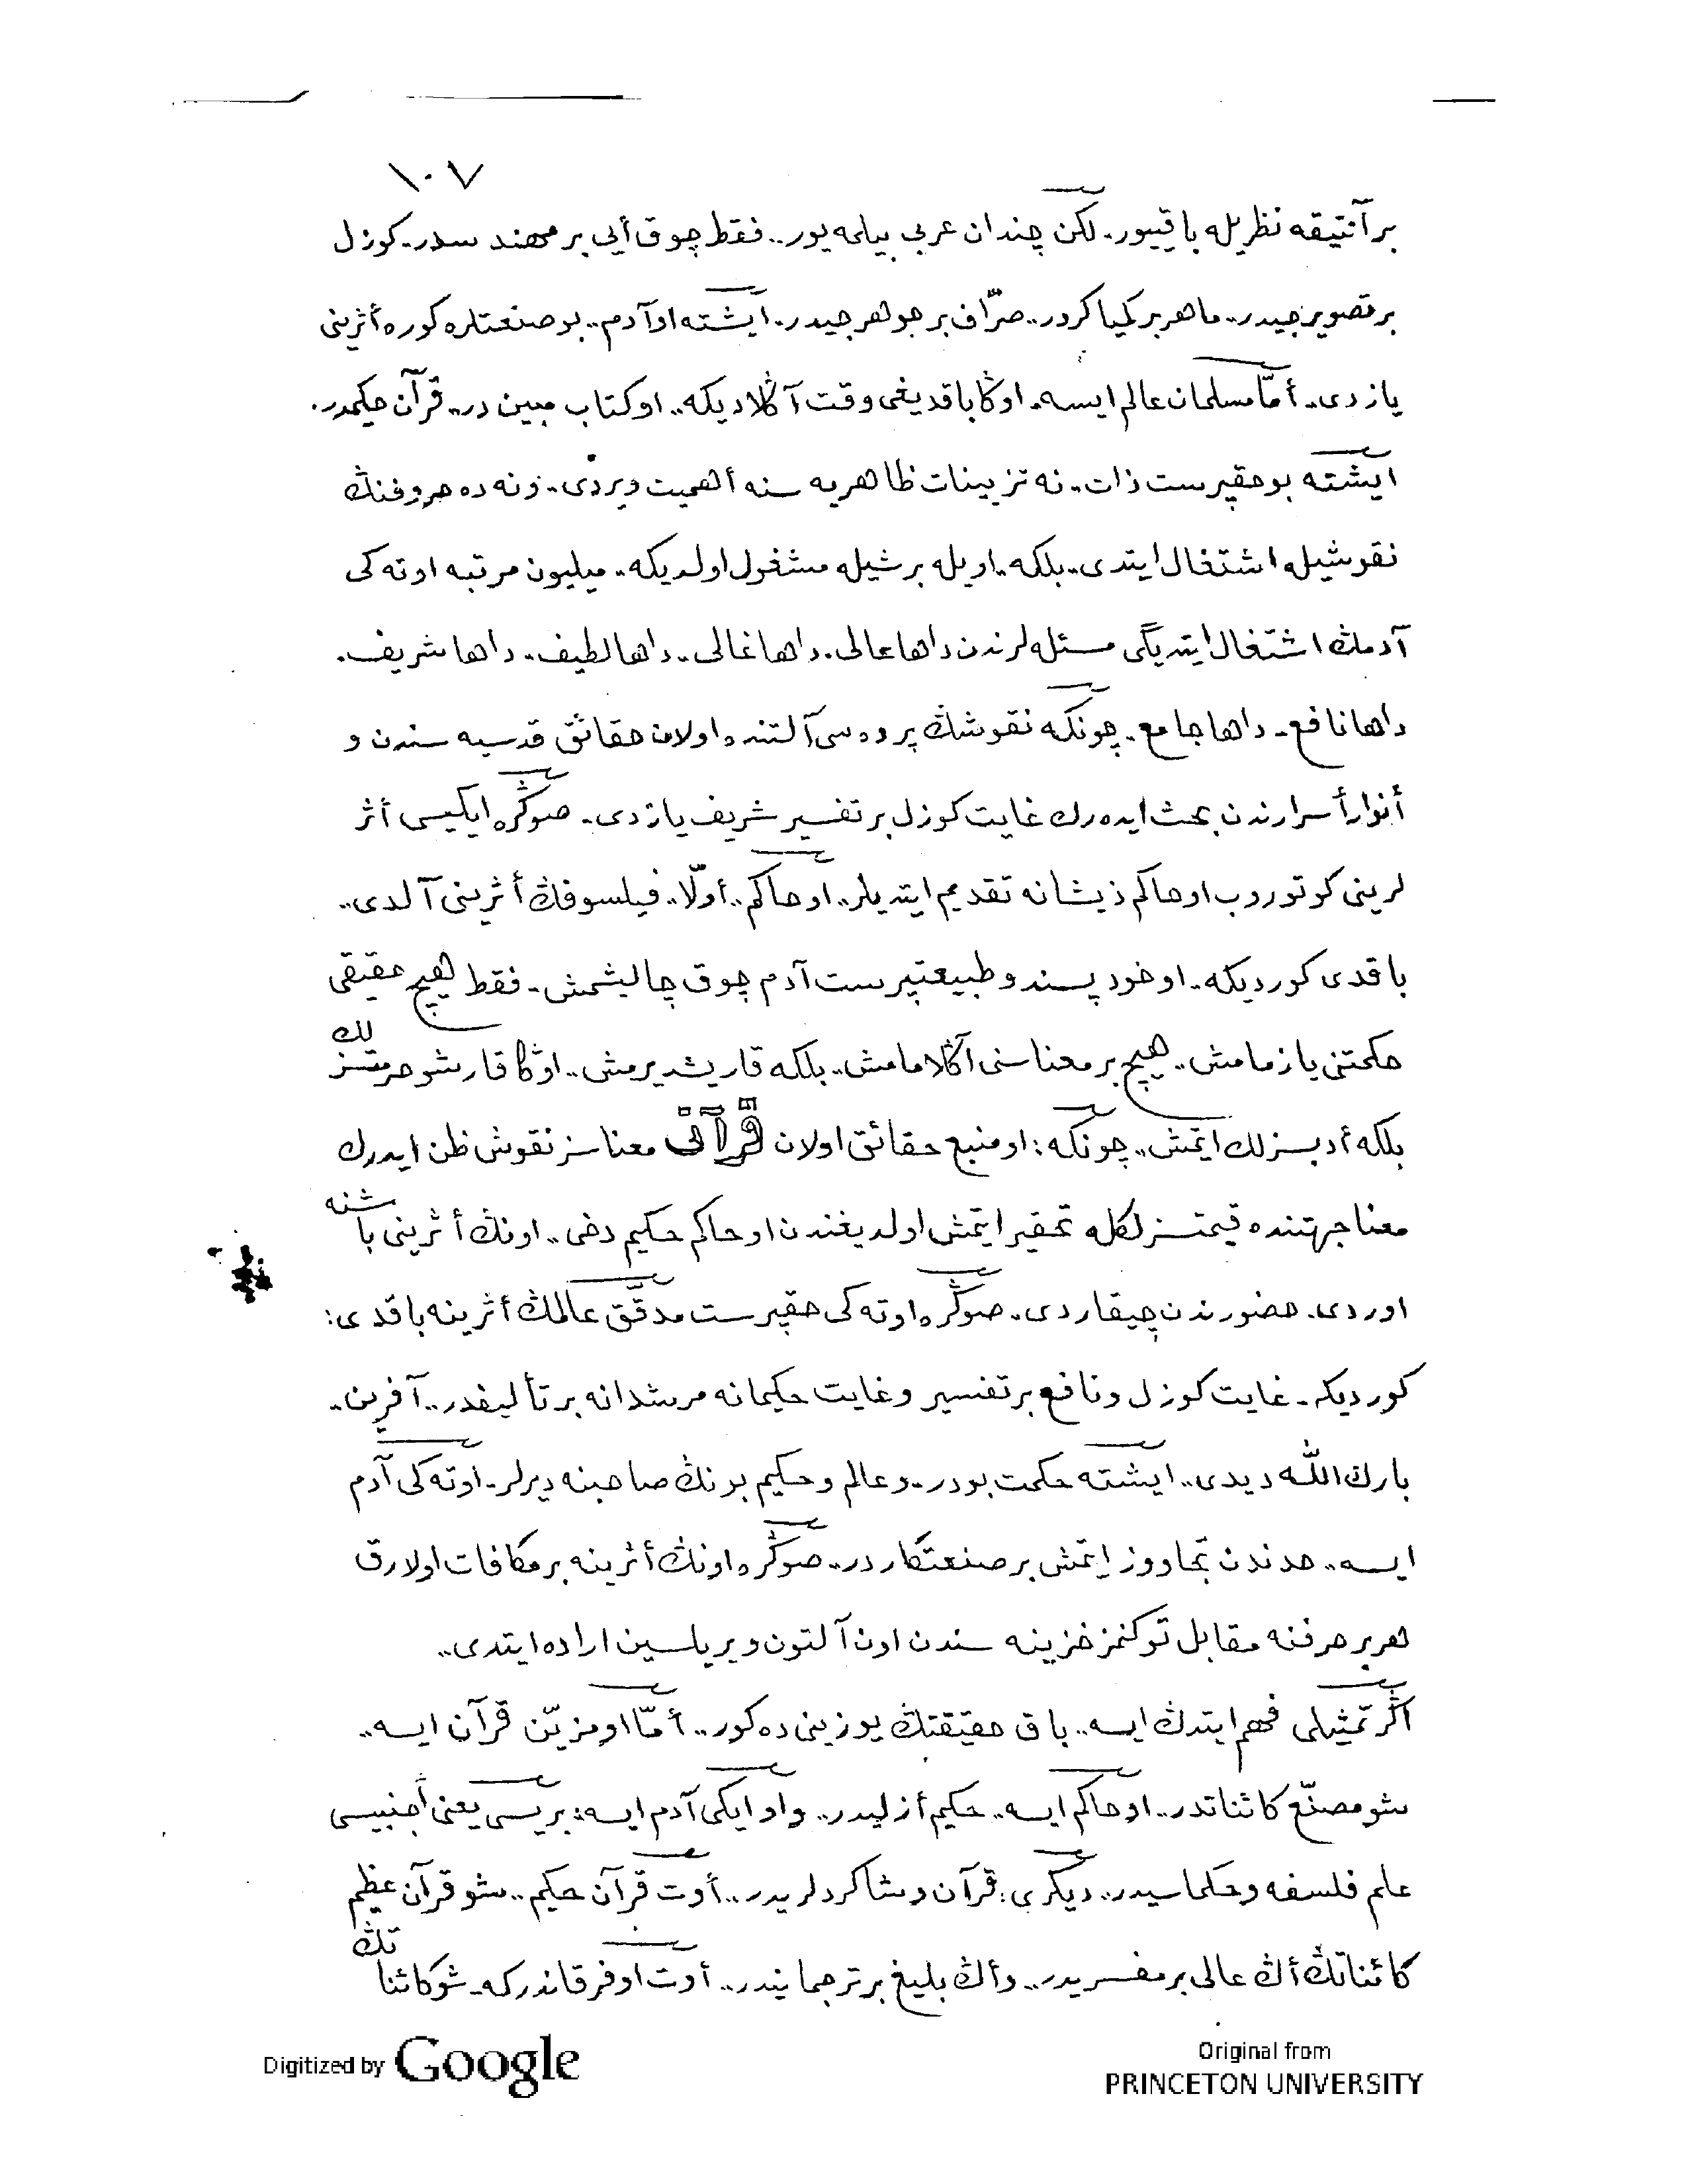 ١٠٧
بر آنتيقه نظريله باقييور. لكن چندان عربى بيلمه يور.. فقط چوق أيى بر مهندسدر. كوزل
بر تصويرجيدر.. ماهر بر كيمياكردر.. صرّاف بر جوهرجيدر. ايشته او آدم.. بو صنعتلره كوره أثرينى
يازدى.. أمّا مسلمان عالم ايسه. اوڭا باقديغى وقت آڭلاديكه.. او كتاب مبين در.. قرآن حكيمدر.
ايشته بو حقپرست ذات.. نه تزيينات ظاهريه سنه أهميت ويردى.. ونه ده حروفنڭ
نقوشيله اشتغال ايتدى.. بلكه.. اويله بر شيله مشغول اولديكه. ميليون مرتبه اوته كى
آدمڭ اشتغال ايتديگى مسئله لرندن داها عالى. داها غالى.. داها لطيف.. داها شريف.
داها نافع. داها جامع. چونكه نقوشڭ پرده سى آلتنده اولان حقائق قدسيه سندن و
أنوار أسرارندن بحث ايده رك غايت كوزل بر تفسير شريف يازدى. صوڭره ايكيسى أثر
لرينى كوتوروب او حاكم ذيشانه تقديم ايتديلر.. او حاكم.. أولّا.. فيلسوفڭ أثرينى آلدى..
باقدى كورديكه.. او خودپسند و طبيعتپرست آدم چوق چاليشمش. فقط هيچ حقيقى
حكمتنى يازمامش.. هيچ بر معناسنى آڭلامامش.. بلكه قاريشديرمش.. اوڭا قارشو حرمتسزلك
بلكه أدبسزلك ايتمش.. چونكه: او منبع حقائق اولان قرآنى معناسز نقوش ظن ايدرك
معنا جهتنده قيمتسزلكله تحقير ايتمش اولديغندن او حاكم حكيم دخى.. اونڭ أثرينى باشنه
اوردى. حضورندن چيقاردى. صوڭره اوته كى حقپرست مدقّق عالمڭ أثرينه باقدى:
كورديكه. غايت كوزل و نافع بر تفسير و غايت حكيمانه مرشدانه بر تأليفدر.. آفرين.
بارك الله ديدى.. ايشته حكمت بودر.. و عالم و حكيم بونڭ صاحبنه ديرلر. اوته كى آدم
ايسه.. حدندن تجاووز ايتمش بر صنعتكاردر.. صوڭره اونڭ أثرينه بر مكافات اولارق
هر بر حرفنه مقابل توكنمز خزينه سندن اون آلتون ويريلسين اراده ايتدى..
اگر تمثيلى فهم ايتدڭ ايسه.. باق حقيقتڭ يوزينى ده كور.. أمّا او مزيّن قرآن ايسه..
شو مصنّع كائناتدر.. او حاكم ايسه.. حكيم أزليدر.. و او ايكى آدم ايسه: بريسى يعنى أجنبيسى
علم فلسفه و حكماسيدر.. ديكرى: قرآن و شاكردلريدر.. أوت قرآن حكيم.. شو قرآن عظيم
كائناتڭ أڭ عالى بر مفسريدر.. و أڭ بليغ بر ترجمانيدر.. أوت او فرقاندركه. شو كائناتڭ
Digitized by Google
Original from
PRINCETON UNIVERSITY